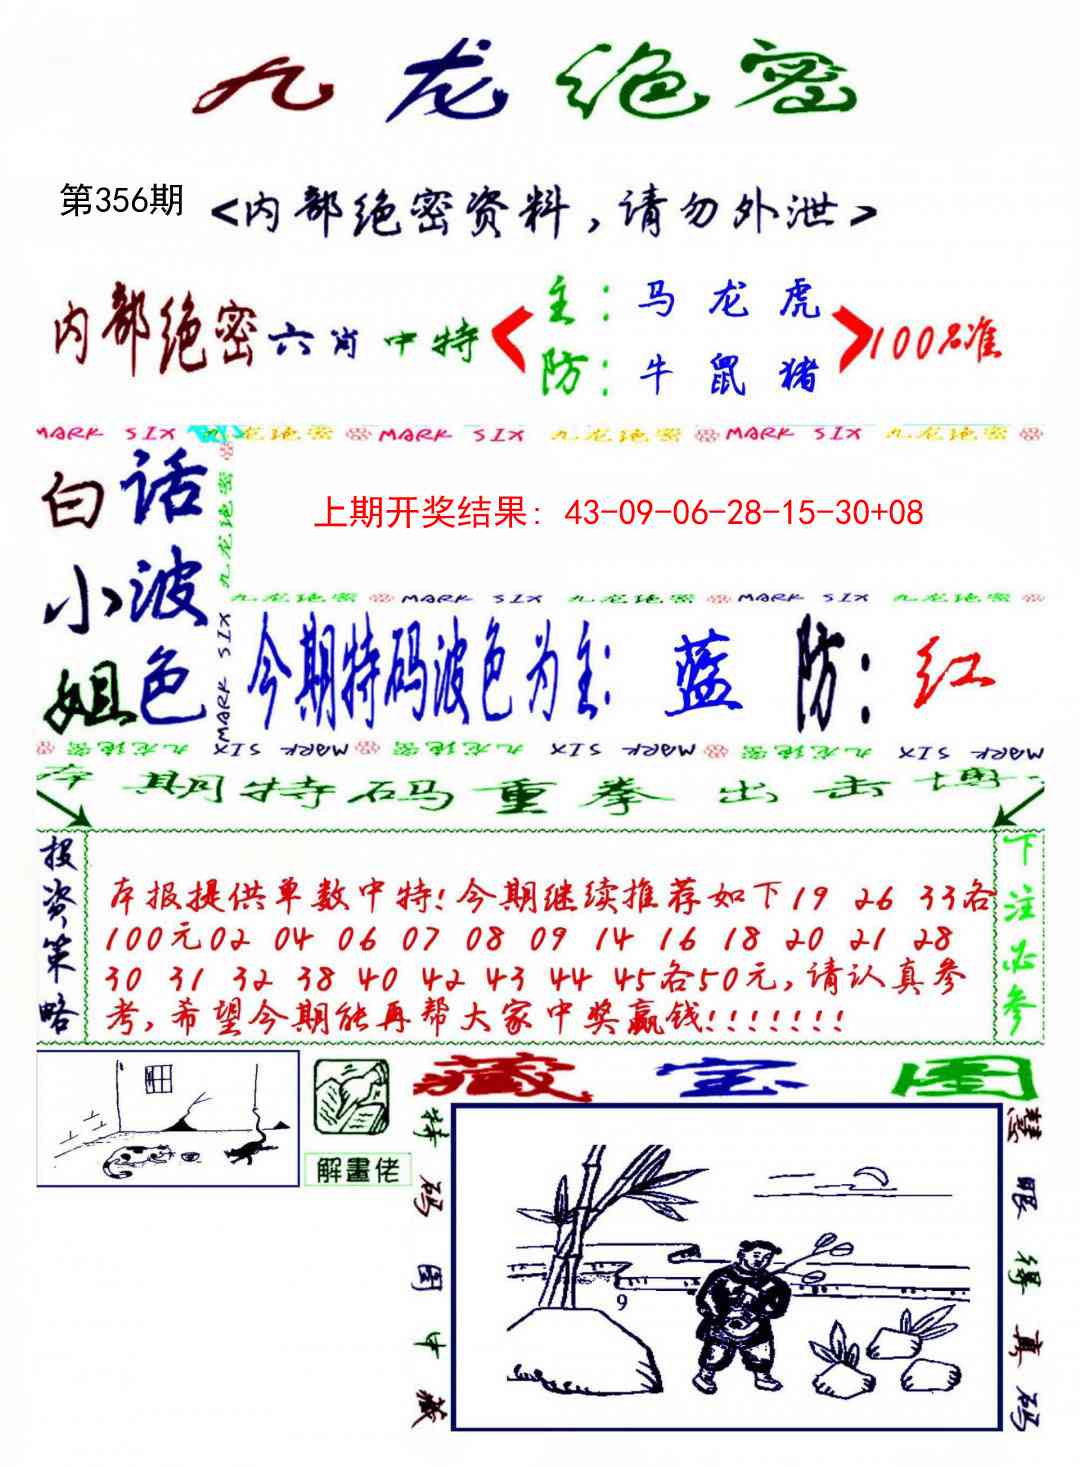 九龙绝密
第356期 <内部绝密资料,请勿外泄>
内部绝密六肖中特
主:马 龙 虎
防:牛 鼠 猪
100%准
MARK SIX 九龙绝密 MARK SIX 九龙绝密 MARK SIX 九龙绝密
白小姐
话波色
九龙绝密
MARK SIX
MARK SIX
上期开奖结果: 43-09-06-28-15-30+08
九龙绝密 MARK SIX 九龙绝密 MARK SIX 九龙绝密
今期特码波色为主: 蓝 防: 红
九龙绝密 MARK SIX 九龙绝密 MARK SIX 九龙绝密 MARK SIX
本期特码重拳出击博
投资策略
本报提供单数中特!今期继续推荐如下19 26 33各
100元02 04 06 07 08 09 14 16 18 20 21 28
30 31 32 38 40 42 43 44 45各50元,请认真参
考,希望今期能再帮大家中奖赢钱!!!!!!!
下注必参
解畫佬
藏宝图
特码图中藏
9
慧眼得真码